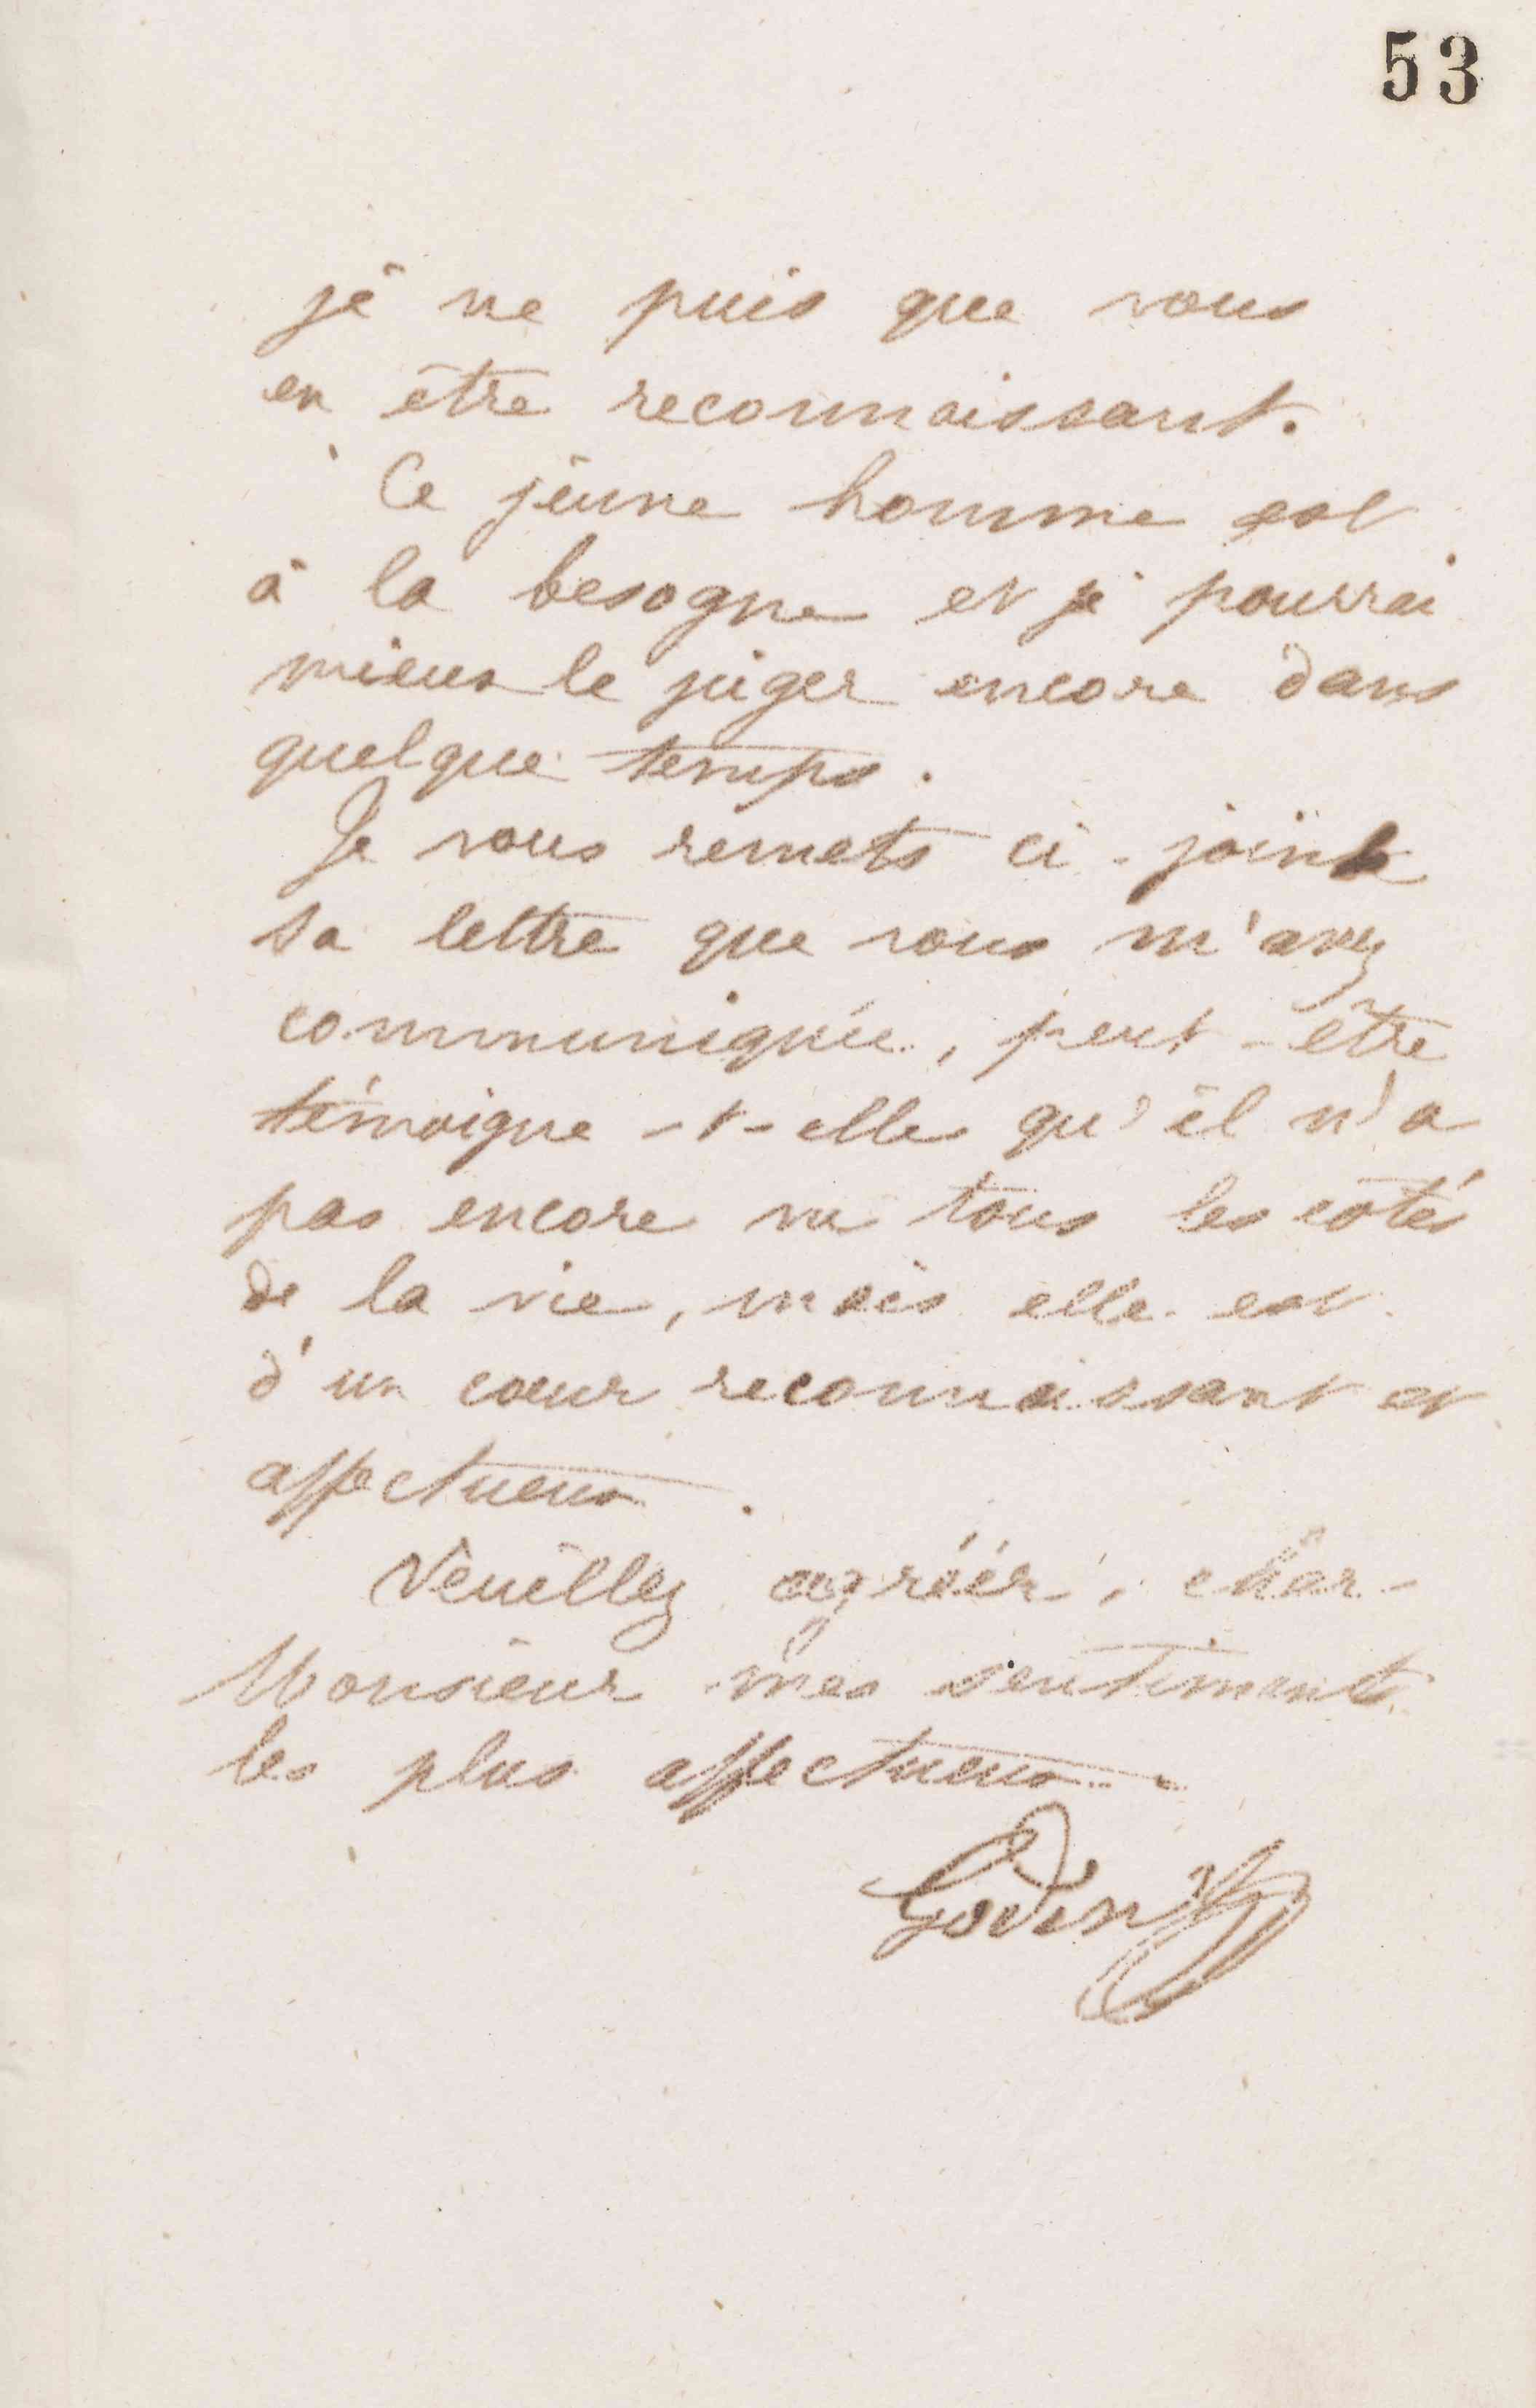 53
je ne puis que vous
en être reconnaissant.
Ce jeune homme est
à la besogne et je pourrai
mieux le juger encore dans
quelque temps.
Je vous remets ci-joint
sa lettre que vous m'avez
communiquée, peut-être
témoigne-t-elle qu'il n'a
pas encore vu tous les côtés
de la vie, mais elle est
d'un cœur reconnaissant et
affectueux.
Veuillez agréer, cher
Monsieur mes sentiments
les plus affectueux.
Godin